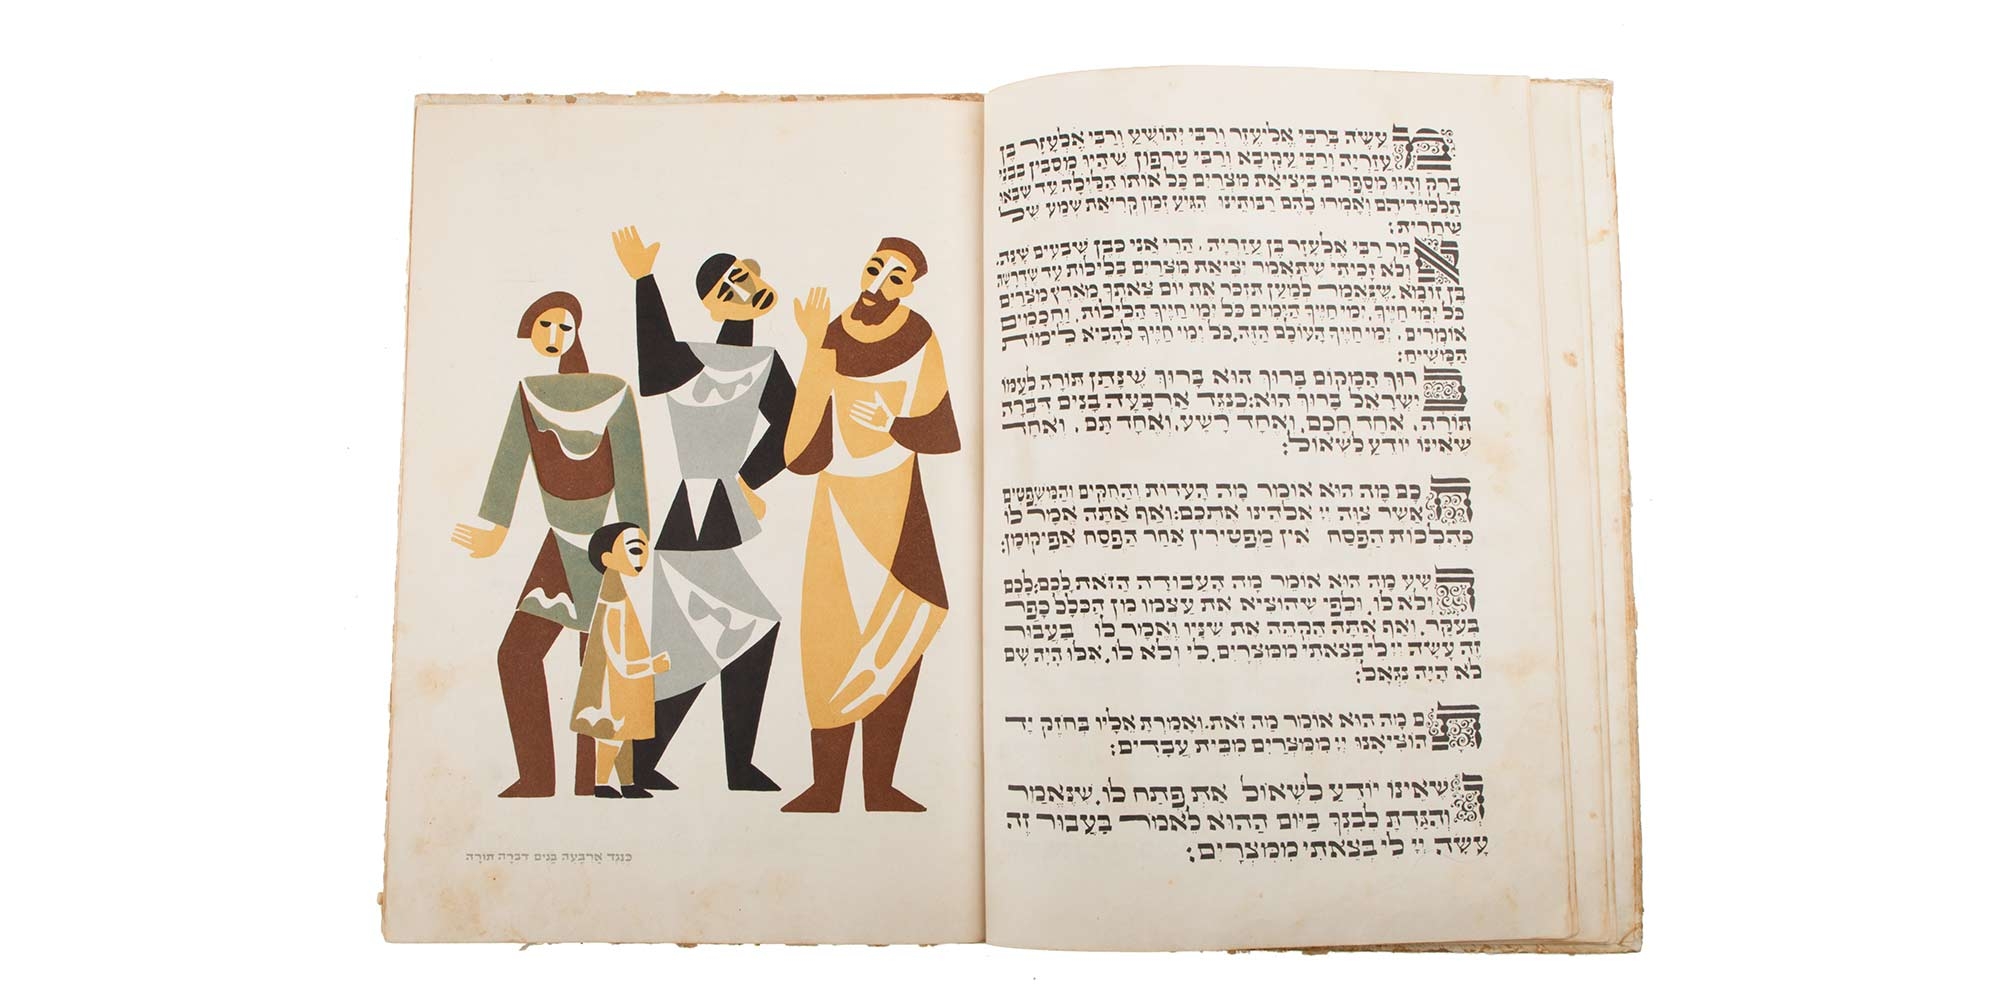 מַעֲשֶׂה בְּרַבִּי אֱלִיעֶזֶר וְרַבִּי יְהוֹשֻׁעַ וְרַבִּי אֶלְעָזָר בֶּן
עֲזַרְיָה וְרַבִּי עֲקִיבָא וְרַבִּי טַרְפוֹן שֶׁהָיוּ מְסֻבִּין בִּבְנֵי
בְּרַק וְהָיוּ מְסַפְּרִים בִּיצִיאַת מִצְרַיִם כָּל אוֹתוֹ הַלַּיְלָה עַד שֶׁבָּאוּ
תַלְמִידֵיהֶם וְאָמְרוּ לָהֶם רַבּוֹתֵינוּ הִגִּיעַ זְמַן קְרִיאַת שְׁמַע שֶׁל
שַׁחֲרִית:
אָמַר רַבִּי אֶלְעָזָר בֶּן עֲזַרְיָה, הֲרֵי אֲנִי כְּבֶן שִׁבְעִים שָׁנָה,
וְלֹא זָכִיתִי שֶׁתֵּאָמֵר יְצִיאַת מִצְרַיִם בַּלֵּילוֹת עַד שֶׁדְּרָשָׁהּ
בֶּן זוֹמָא. שֶׁנֶּאֱמַר לְמַעַן תִּזְכֹּר אֶת יוֹם צֵאתְךָ מֵאֶרֶץ מִצְרַיִם
כֹּל יְמֵי חַיֶּיךָ. יְמֵי חַיֶּיךָ הַיָּמִים כֹּל יְמֵי חַיֶּיךָ הַלֵּילוֹת. וַחֲכָמִים
אוֹמְרִים. יְמֵי חַיֶּיךָ הָעוֹלָם הַזֶּה. כֹּל יְמֵי חַיֶּיךָ לְהָבִיא לִימוֹת
הַמָּשִׁיחַ:
בָּרוּךְ הַמָּקוֹם בָּרוּךְ הוּא בָּרוּךְ שֶׁנָּתַן תּוֹרָה לְעַמּוֹ
יִשְׂרָאֵל בָּרוּךְ הוּא: כְּנֶגֶד אַרְבָּעָה בָנִים דִּבְּרָה
תוֹרָה. אֶחָד חָכָם. וְאֶחָד רָשָׁע. וְאֶחָד תָּם. וְאֶחָד
שֶׁאֵינוֹ יוֹדֵעַ לִשְׁאוֹל:
חָכָם מַה הוּא אוֹמֵר מָה הָעֵדוֹת וְהַחֻקִּים וְהַמִּשְׁפָּטִים
אֲשֶׁר צִוָּה יְיָ אֱלֹהֵינוּ אֶתְכֶם: וְאַף אַתָּה אֱמָר לוֹ
כְּהִלְכוֹת הַפֶּסַח אֵין מַפְטִירִין אַחַר הַפֶּסַח אֲפִיקוֹמָן:
רָשָׁע מַה הוּא אוֹמֵר מָה הָעֲבוֹדָה הַזֹּאת לָכֶם: לָכֶם
וְלֹא לוֹ. וּלְפִי שֶׁהוֹצִיא אֶת עַצְמוֹ מִן הַכְּלָל כָּפַר
בָּעִקָּר. וְאַף אַתָּה הַקְהֵה אֶת שִׁנָּיו וֶאֱמָר לוֹ בַּעֲבוּר
זֶה עָשָׂה יְיָ לִי בְּצֵאתִי מִמִּצְרָיִם. לִי וְלֹא לוֹ. אִלּוּ הָיָה שָׁם
לֹא הָיָה נִגְאָל:
תָּם מַה הוּא אוֹמֵר מַה זֹּאת. וְאָמַרְתָּ אֵלָיו בְּחֹזֶק יָד
הוֹצִיאָנוּ יְיָ מִמִּצְרַיִם מִבֵּית עֲבָדִים:
וְשֶׁאֵינוֹ יוֹדֵעַ לִשְׁאוֹל אַתְּ פְּתַח לוֹ. שֶׁנֶּאֱמַר
וְהִגַּדְתָּ לְבִנְךָ בַּיּוֹם הַהוּא לֵאמֹר בַּעֲבוּר זֶה
עָשָׂה יְיָ לִי בְּצֵאתִי מִמִּצְרָיִם:
כְּנֶגֶד אַרְבָּעָה בָּנִים דִּבְּרָה תוֹרָה